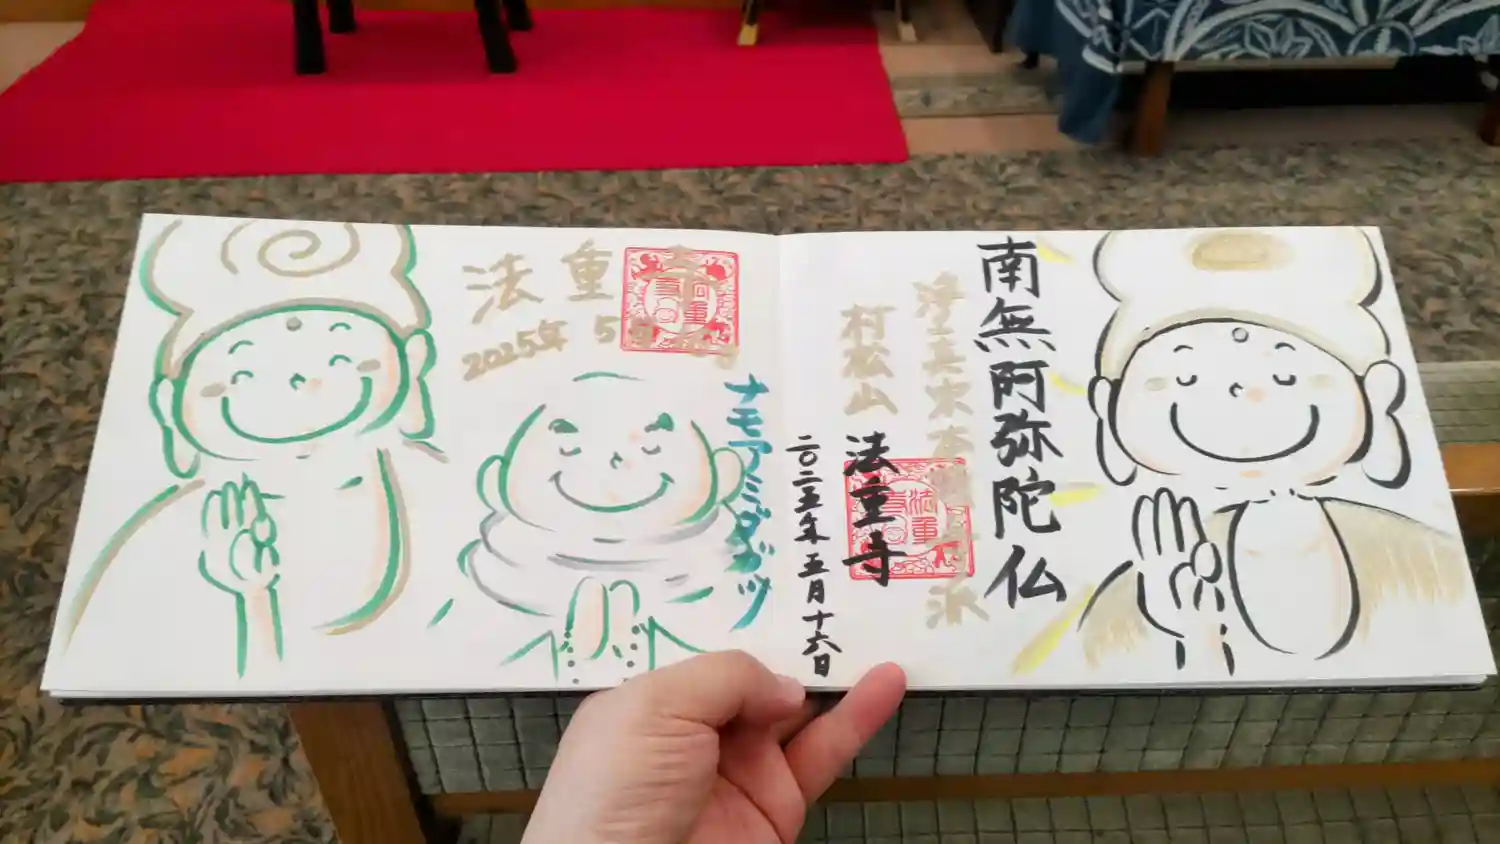 南無阿弥陀仏
浄土真宗本願寺派
村松山
法重寺
二〇二五年五月十六日
法重寺
2025年 5月
ナモアミダブツ